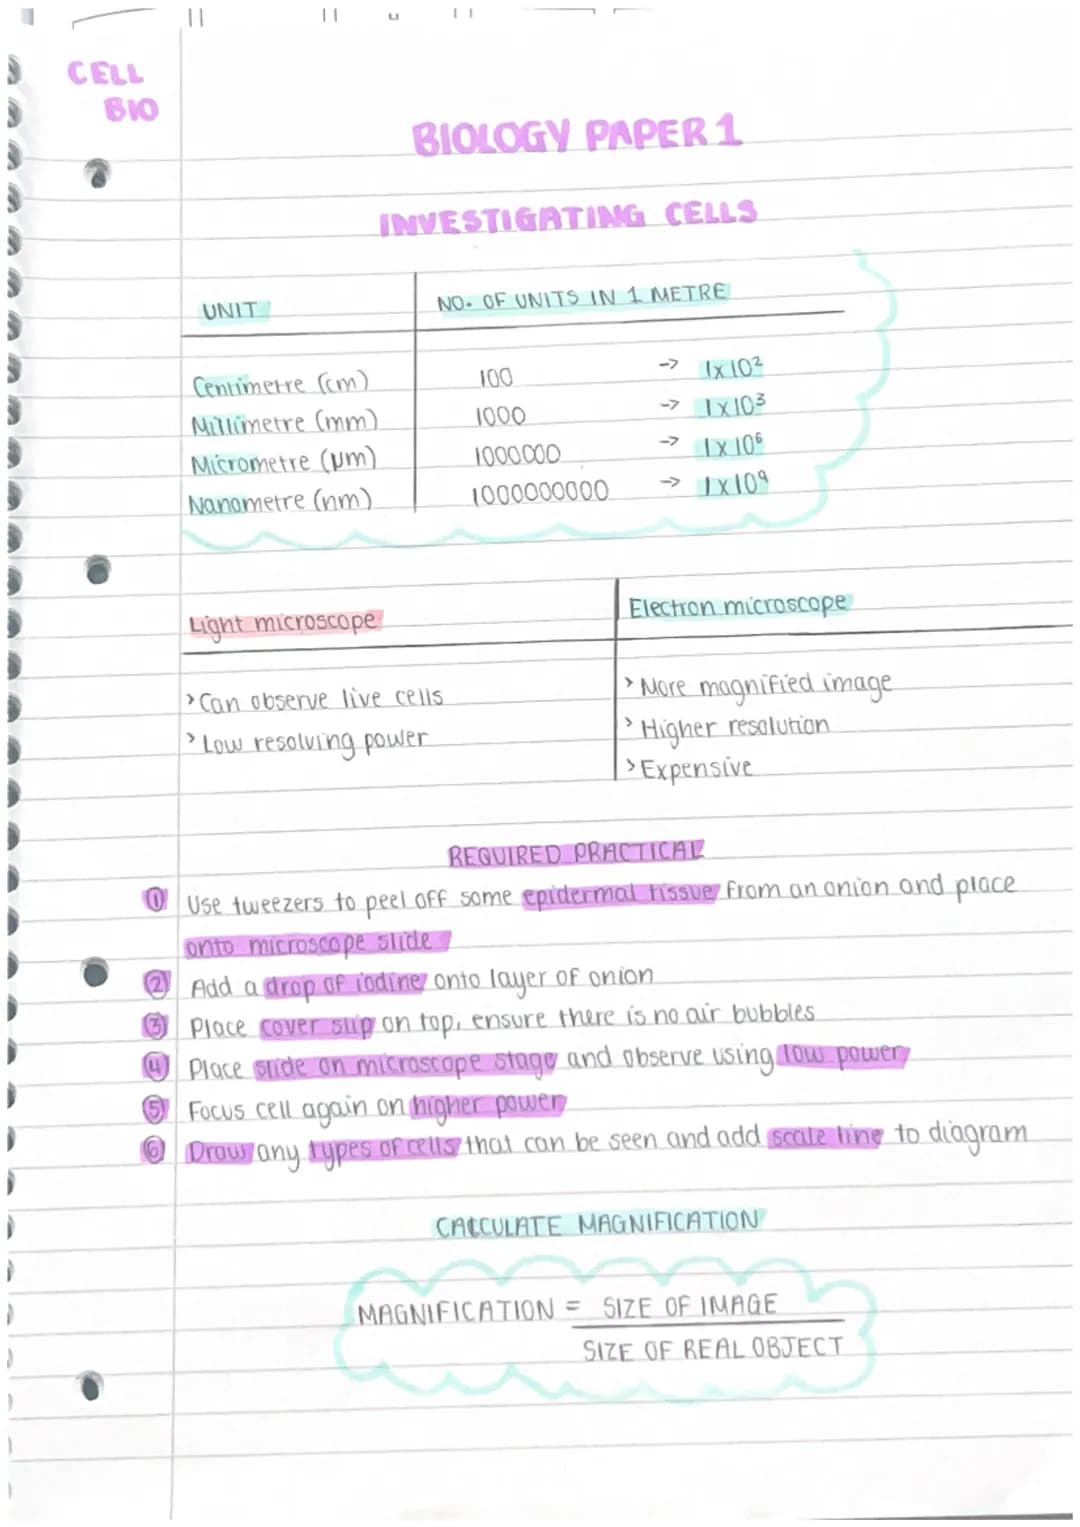 CELL
BIO
BIOLOGY PAPER 1
INVESTIGATING CELLS
UNIT NO. OF UNITS IN 1 METRE
Centimetre (cm) 100 -> 1x10²
Millimetre (mm) 1000 -> 1x10³
Micrometre (μm) 1000000 -> 1x10⁶
Nanometre (nm) 1000000000 -> 1x10⁹
Light microscope Electron microscope
> Can observe live cells > More magnified image
> Low resolving power > Higher resolution
> Expensive
REQUIRED PRACTICAL
① Use tweezers to peel off some epidermal tissue from an onion and place
onto microscope slide
② Add a drop of iodine onto layer of onion
③ Place cover slip on top, ensure there is no air bubbles
④ Place slide on microscope stage and observe using low power
⑤ Focus cell again on higher power
⑥ Draw any types of cells that can be seen and add scale line to diagram
CALCULATE MAGNIFICATION
MAGNIFICATION = SIZE OF IMAGE
SIZE OF REAL OBJECT